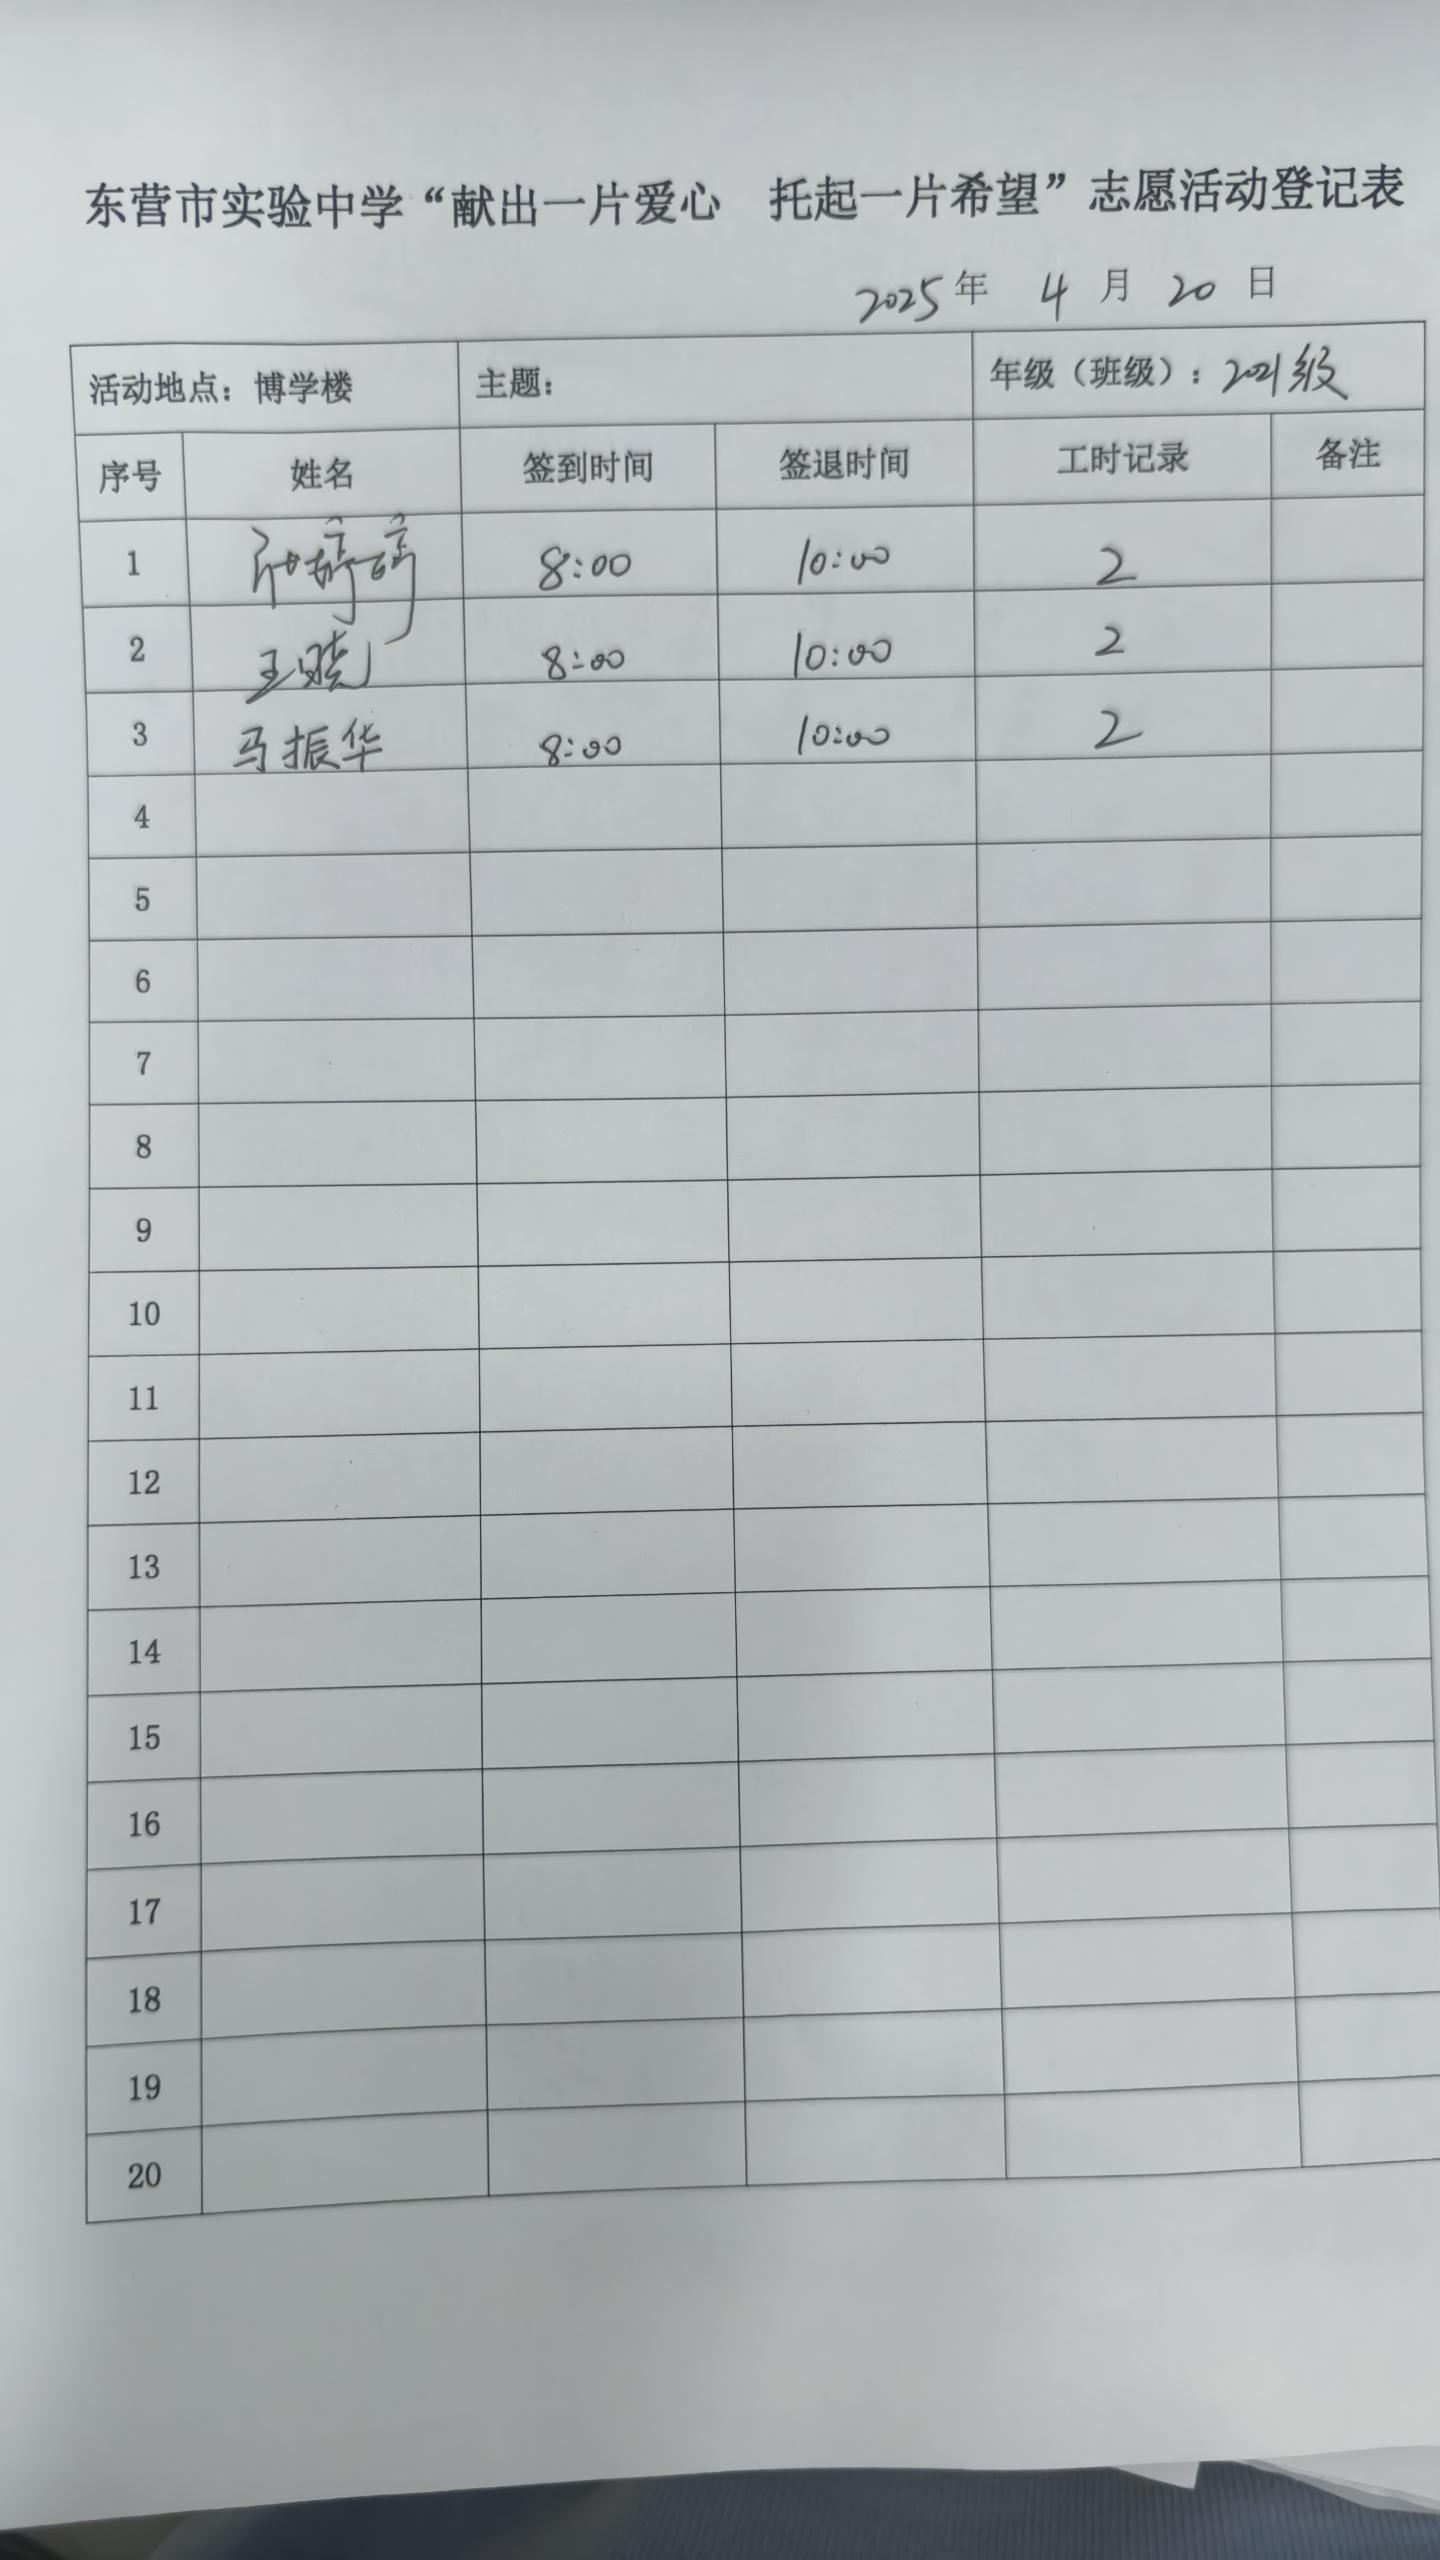 东营市实验中学“献出一片爱心 托起一片希望”志愿活动登记表
2025年 4 月 20 日
活动地点：博学楼 主题： 年级（班级）：2021级
序号 姓名 签到时间 签退时间 工时记录 备注
1 8:00 10:00 2
2 王晓 8:00 10:00 2
3 马振华 8:00 10:00 2
4
5
6
7
8
9
10
11
12
13
14
15
16
17
18
19
20